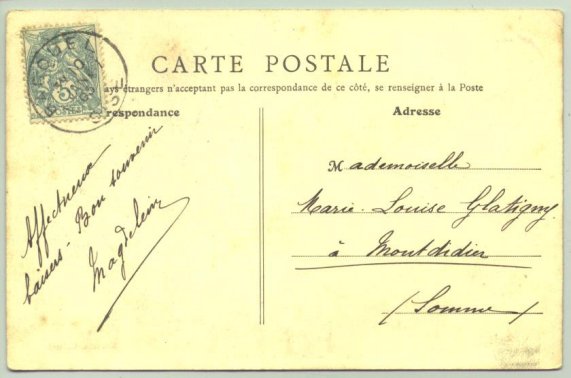 CARTE POSTALE
pays étrangers n'acceptant pas la correspondance de ce côté, se renseigner à la Poste
respondance
Adresse
Affectueux
baisers - Bon souvenir
Magdeleine
Mademoiselle
Marie-Louise Glatigny
à Montdidier
(Somme)